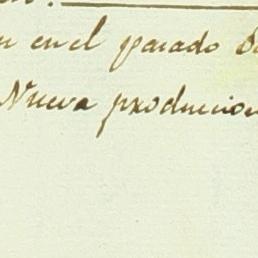 en el parado
Nueva producion